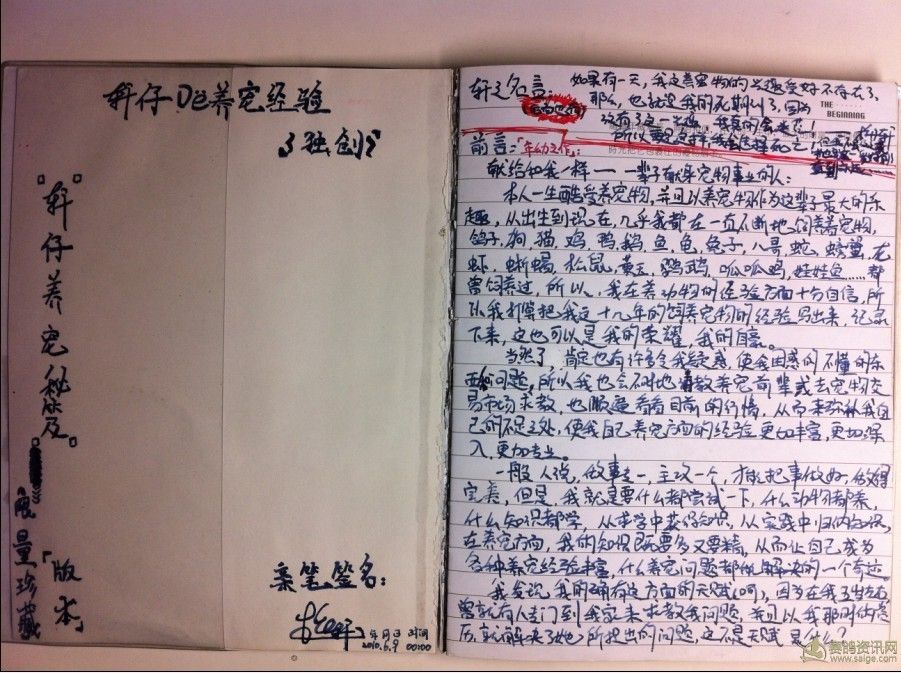 轩仔De养宠经验
独创
『轩仔养宠秘笈』
限量珍藏
「版本」
亲笔签名:
年月日 时间
2010.6.9 00:00
轩之名言: 如果有一天,我这养宠物的兴趣爱好不存在了,
那么,也就是我的死期到了,因为
THE
BEGINNING
前言:“年幼之作”
献给和我一样——一辈子献身宠物事业的人:
本人一生酷爱养宠物,并且以养宠物作为这辈子最大的乐
趣,从出生到现在,几乎我都在一直不断地饲养着宠物,
鸽子,狗,猫,鸡,鸭,鹅,鱼,龟,兔子,八哥,蛇,螃蟹,龙
虾,蜥蜴,松鼠,鹦鹉,呱呱鸡,娃娃鱼……都
曾饲养过,所以,我在养动物的经验方面十分自信,所
以我打算把我这十几年的饲养宠物的经验写出来,记录
下来,这也可以是我的荣耀,我的自豪。
当然了,肯定也有许多令我疑惑,使我困惑的不懂的东
西和问题,所以我也会不时地请教养宠前辈或去宠物交
易市场求教,也顺道看看目前的行情,从而来弥补我自
己的不足之处,使我自己养宠方面的经验更加丰富,更加深
入,更加专业。
一般人说,做事专一,主攻一个,才能把事做好,做得
完美,但是,我就是要什么都尝试一下,什么动物都养,
什么知识都学,从求学中获得知识,从实践中归纳知识,
在养宠方面,我的知识既要多又要精,从而让自己成为
各种养宠经验丰富,什么养宠问题都能解决的一个奇迹。
我发现,我的确有这方面的天赋(呵),因为在我5岁左右,
曾就有人专门到我家来求教我问题,并且以我那时的
历就解决了她所提出的问题,这不是天赋是什么?
赛鸽资讯网
www.saige.com